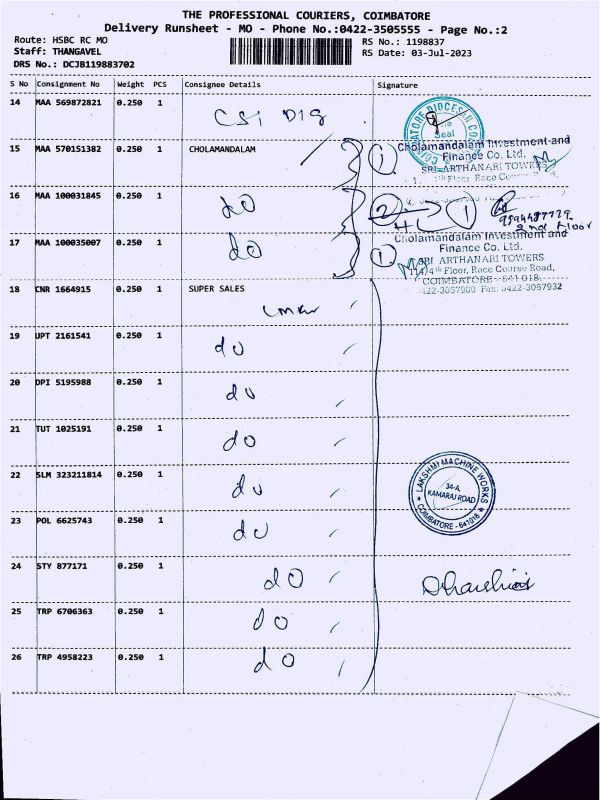 THE PROFESSIONAL COURIERS, COIMBATORE
Delivery Runsheet - MO - Phone No.:0422-3505555 - Page No.:2
Route: HSBC RC MO
RS No.: 1198837
Staff: THANGAVEL
RS Date: 03-Jul-2023
DRS No.: DCJB119883702
S No Consignment No Weight PCS Consignee Details Signature
14 MAA 569872821 0.250 1 CSI DIS
COIMBATORE DIOCESAN
Seal
15 MAA 570151382 0.250 1 CHOLAMANDALAM
1 Cholamandalam Investment and
Finance Co. Ltd.
SRI ARTHANARI TOWERS
4th Floor, Race Course
16 MAA 100031845 0.250 1 do
2 1
2nd Floor
17 MAA 100035007 0.250 1 do
1 Cholamandalam Investment and
Finance Co. Ltd.
SRI ARTHANARI TOWERS
4th Floor, Race Course Road,
COIMBATORE - 641 018.
Fax: 0422-3067932
18 CNR 1664915 0.250 1 SUPER SALES
19 UPT 2161541 0.250 1 do
20 DPI 5195988 0.250 1 do
21 TUT 1025191 0.250 1 do
22 SLM 323211814 0.250 1 do
LAKSHMI MACHINE WORKS
34-A,
KAMARAJ ROAD
COIMBATORE - 641018
23 POL 6625743 0.250 1 do
24 STY 877171 0.250 1 do
25 TRP 6706363 0.250 1 do
26 TRP 4958223 0.250 1 do